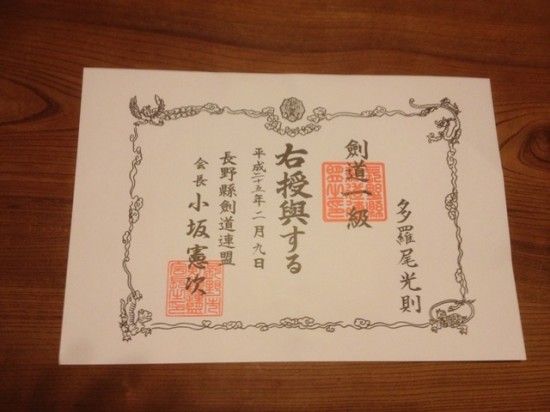 多羅尾光則
劍道一級
右授與する
平成二十五年二月九日
長野縣劍道連盟
会長 小坂憲次